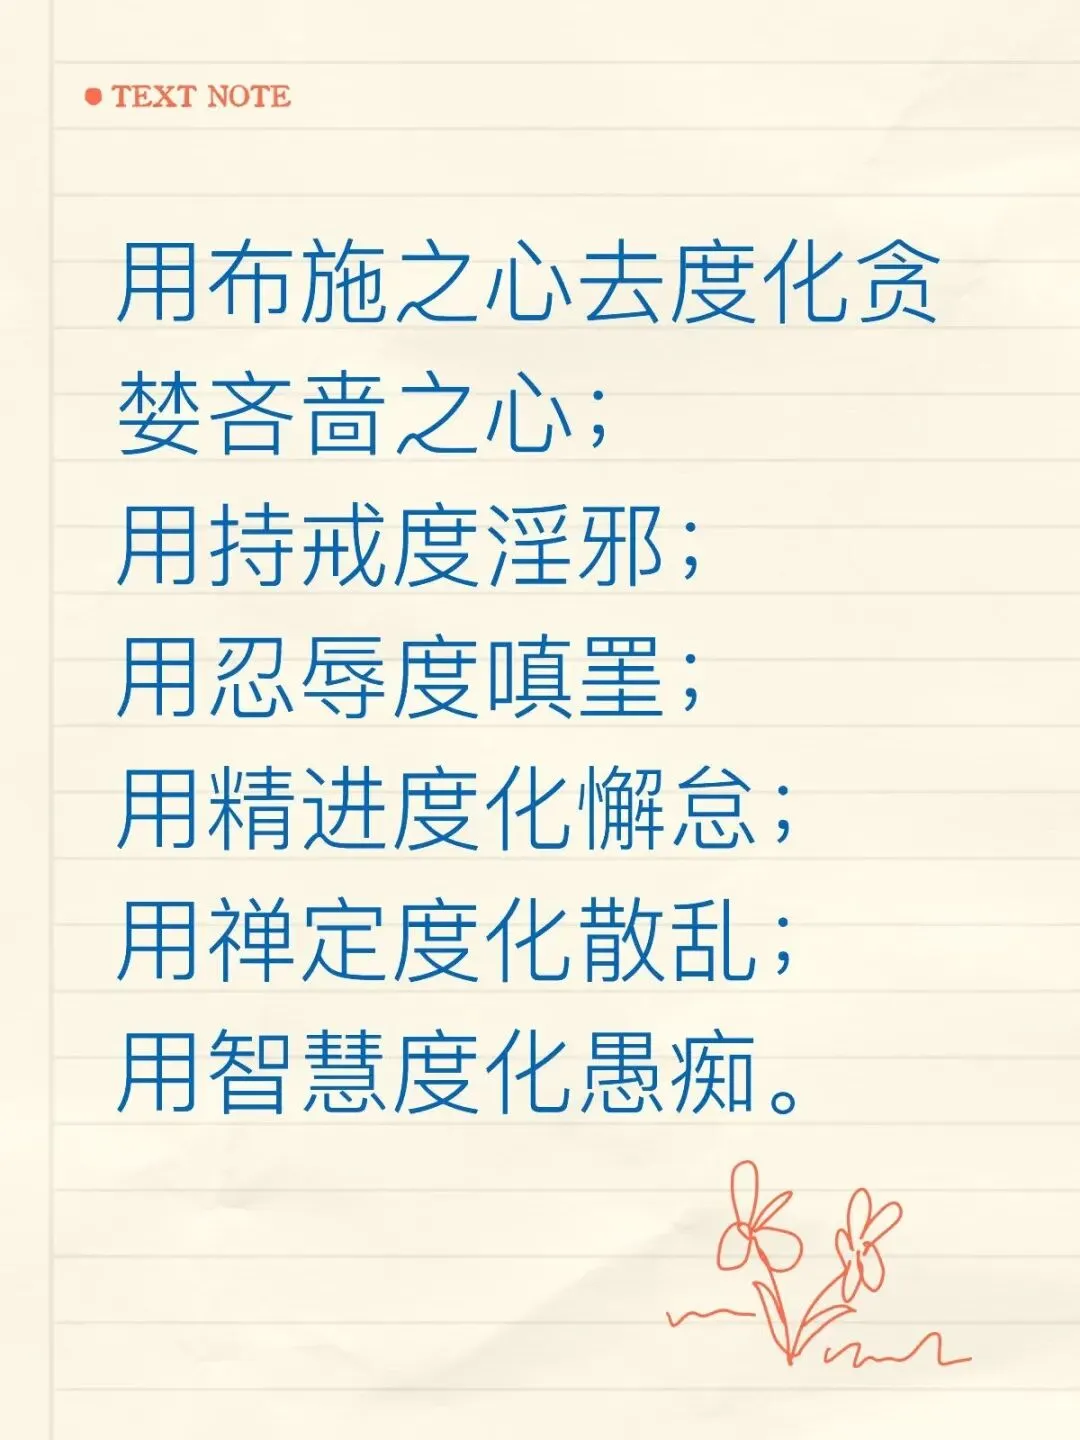 TEXT NOTE
用布施之心去度化贪
婪吝啬之心；
用持戒度淫邪；
用忍辱度嗔罣；
用精进度化懈怠；
用禅定度化散乱；
用智慧度化愚痴。